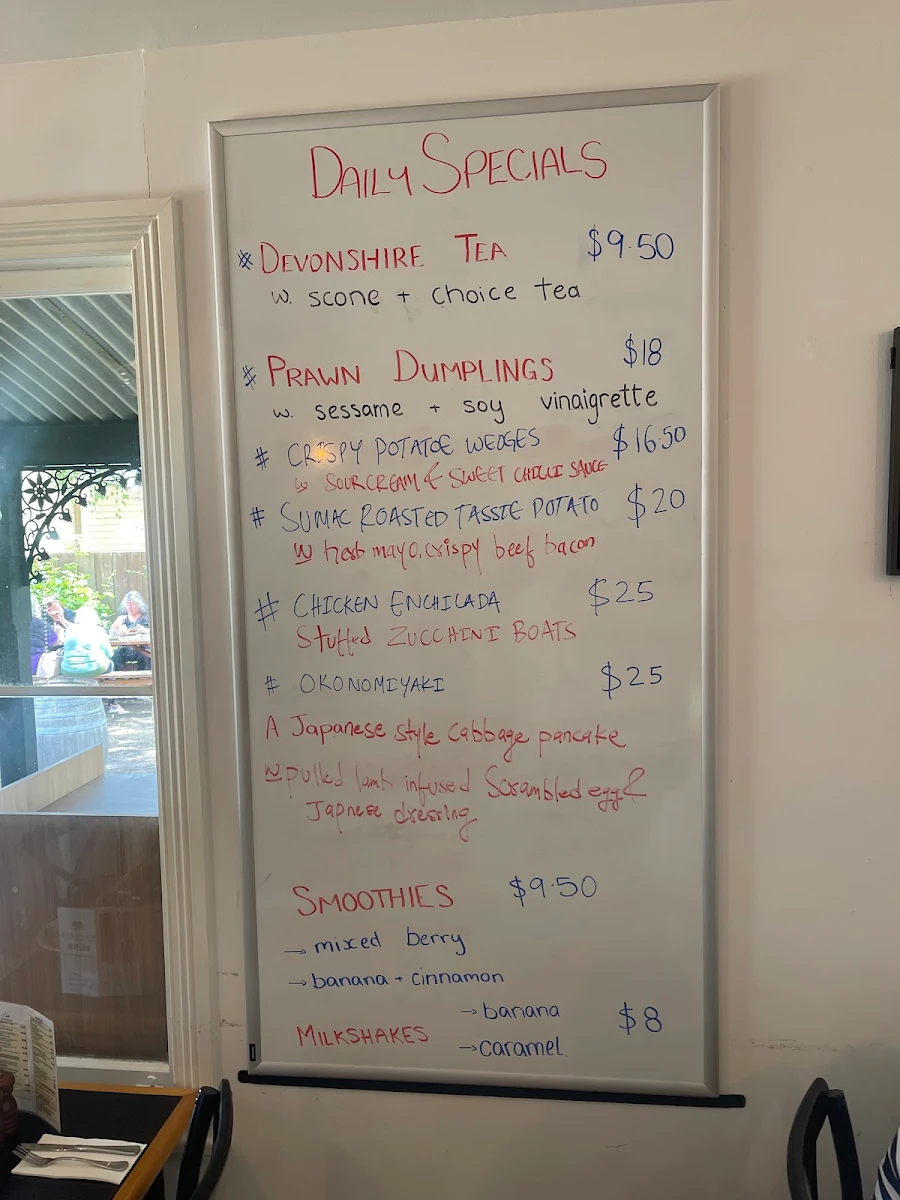 DAILY SPECIALS
* DEVONSHIRE TEA $9.50
w. scone + choice tea
* PRAWN DUMPLINGS $18
w. sessame + soy vinaigrette
# CRISPY POTATOE WEDGES $16.50
w SOUR CREAM & SWEET CHILLI SAUCE
# SUMAC ROASTED TASSIE POTATO $20
w herb mayo, crispy beef bacon
# CHICKEN ENCHILADA $25
Stuffed ZUCCHINI BOATS
# OKONOMIYAKI $25
A Japanese style cabbage pancake
w pulled lamb infused Scrambled egg &
Japnese dressing
SMOOTHIES $9.50
→ mixed berry
→ banana + cinnamon
→ banana $8
MILKSHAKES
→ caramel